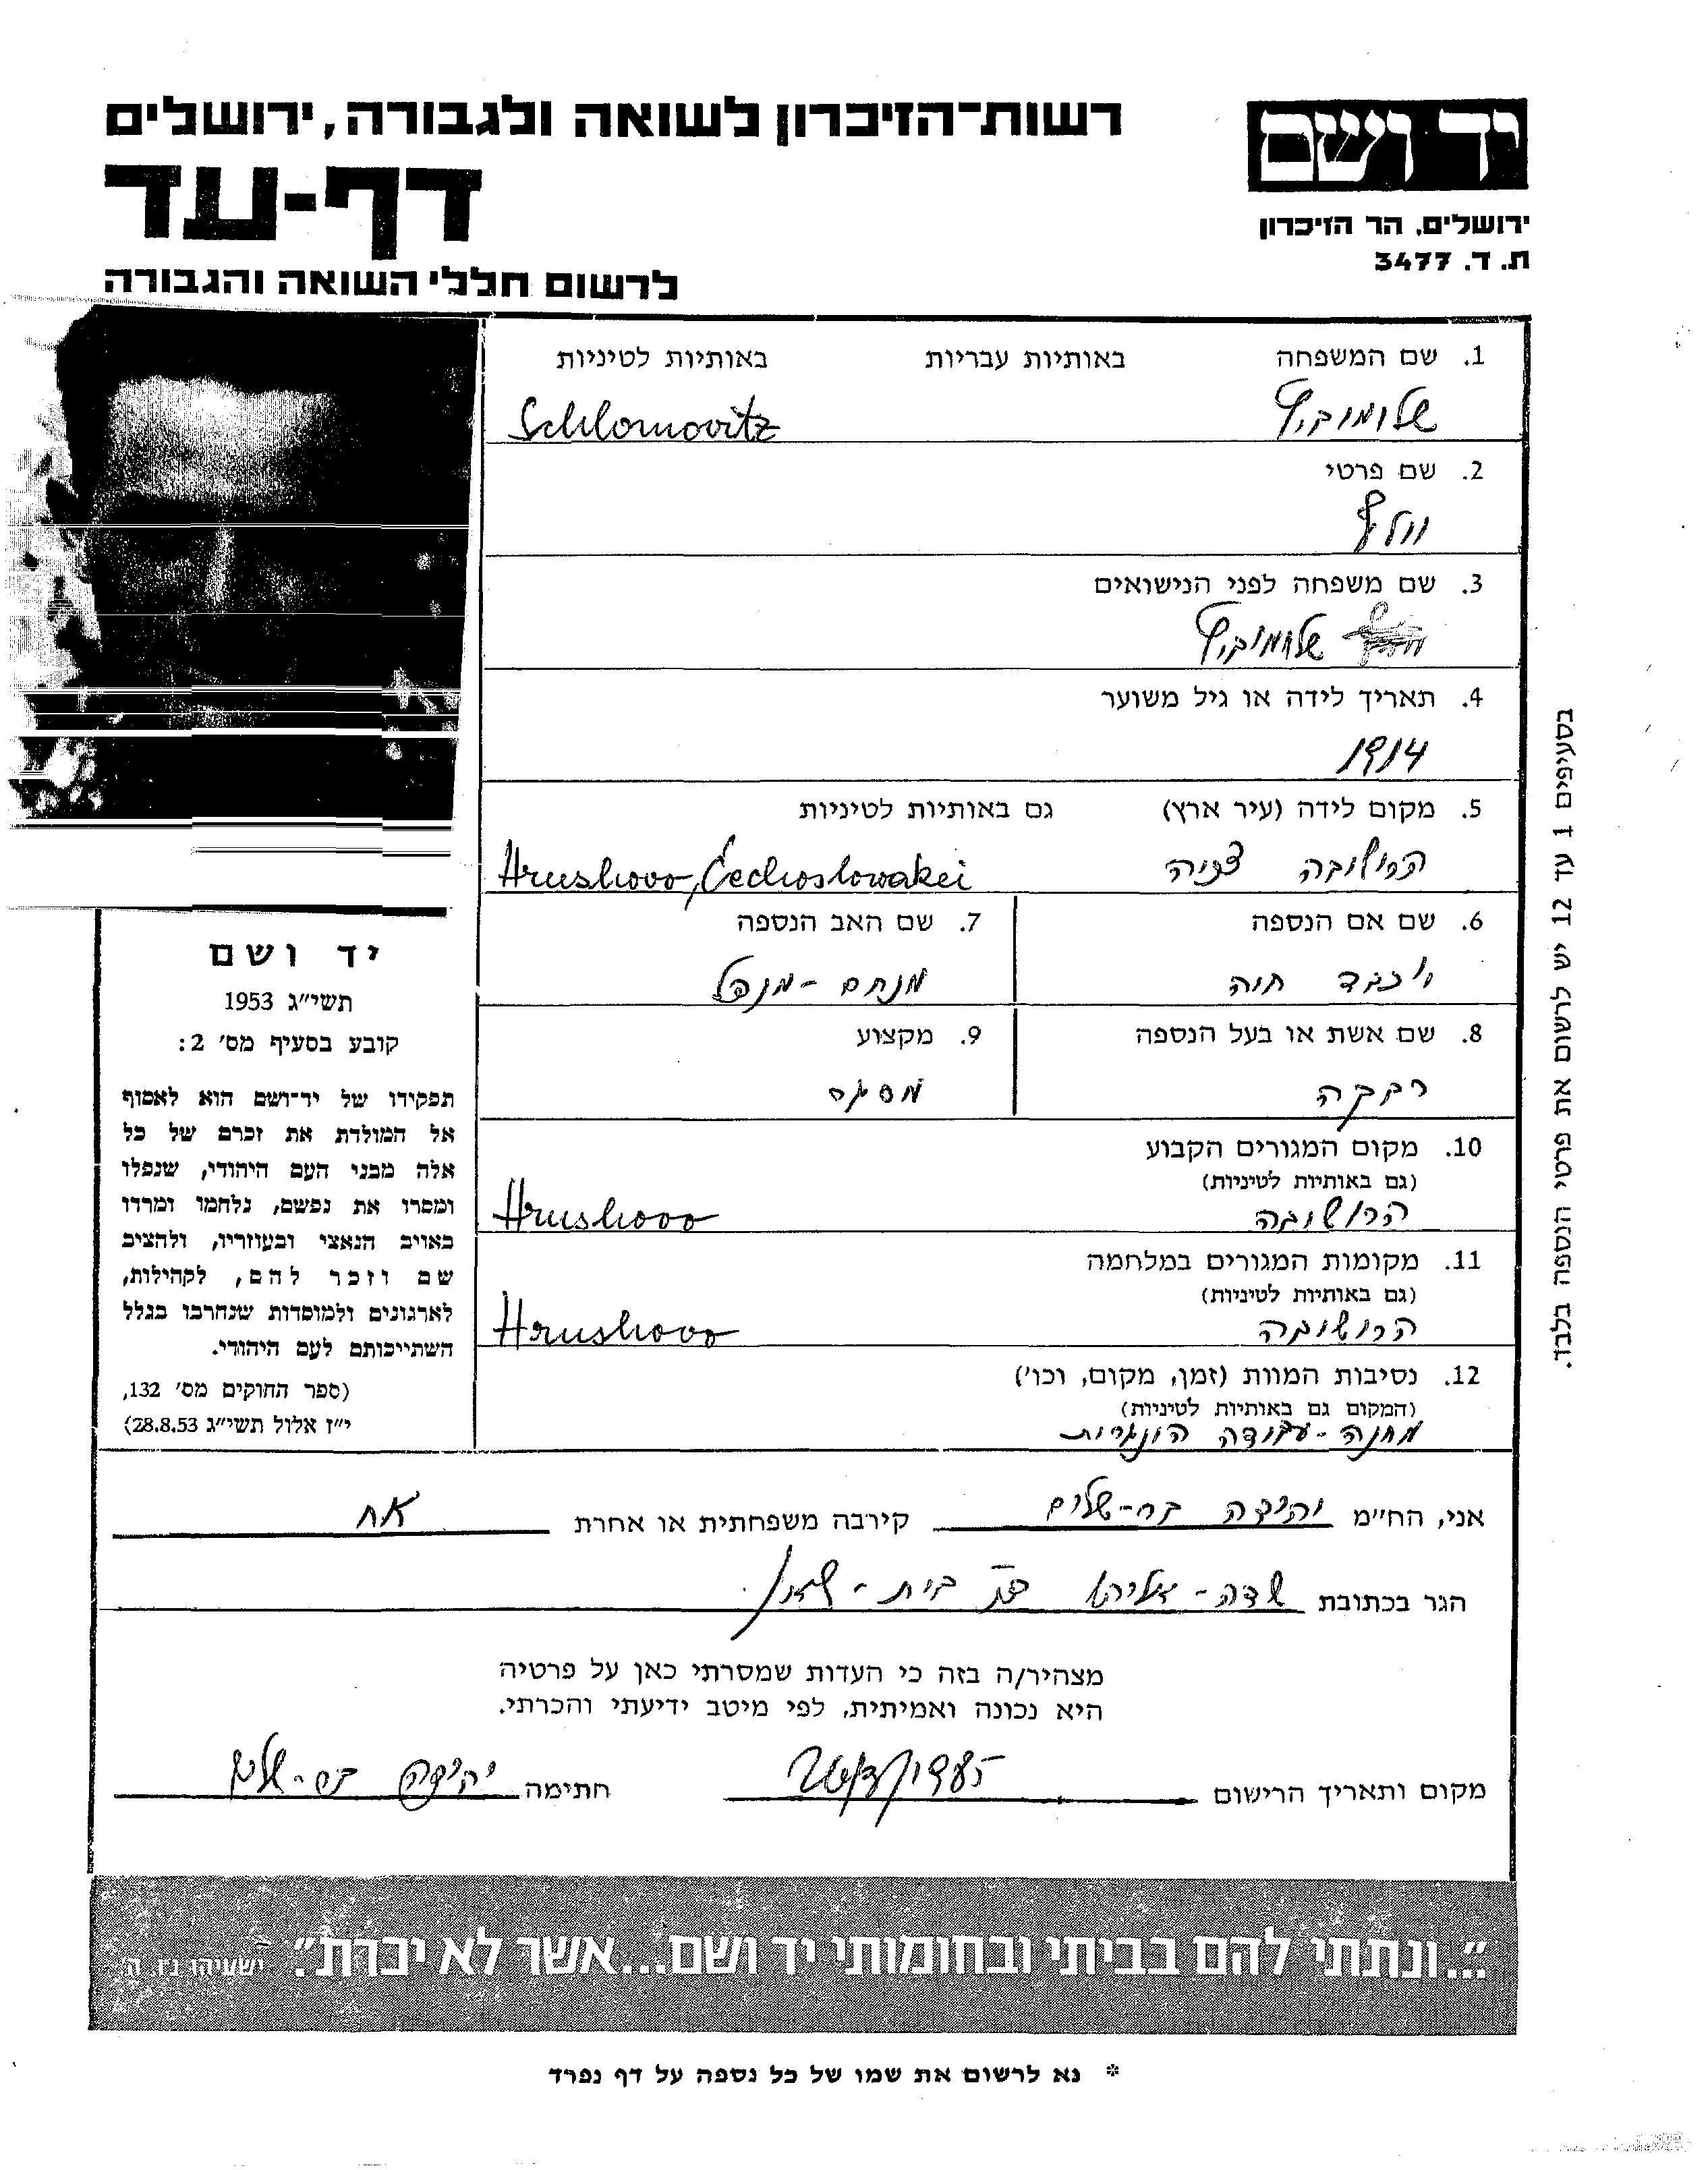 רשות־הזיכרון לשואה ולגבורה, ירושלים
דף-עד
לרשום חללי השואה והגבורה
יד ושם
ירושלים, הר הזיכרון
ת. ד. 3477
1. שם המשפחה באותיות עבריות באותיות לטיניות
שלומוביץ Schlomovitz
2. שם פרטי
וולף
3. שם משפחה לפני הנישואים
שלומוביץ
4. תאריך לידה או גיל משוער
1914
5. מקום לידה (עיר ארץ) גם באותיות לטיניות
הרושובה צכיה Hrushovo, Čechoslowakei
6. שם אם הנספה 7. שם האב הנספה
יוכבד חוה מנחם-מנדל
8. שם אשת או בעל הנספה 9. מקצוע
רבקה מסגר
10. מקום המגורים הקבוע
(גם באותיות לטיניות)
הרושובה Hrushovo
11. מקומות המגורים במלחמה
(גם באותיות לטיניות)
הרושובה Hrushovo
12. נסיבות המוות (זמן, מקום, וכו')
(המקום גם באותיות לטיניות)
מחנה-עבודה הונגרית
יד ושם
תשי"ג 1953
קובע בסעיף מס' 2:
תפקידו של יד־ושם הוא לאסוף
אל המולדת את זכרם של כל
אלה מבני העם היהודי, שנפלו
ומסרו את נפשם, נלחמו ומרדו
באויב הנאצי ובעוזריו, ולהציב
שם וזכר להם, לקהילות,
לארגונים ולמוסדות שנחרבו בגלל
השתייכותם לעם היהודי.
(ספר החוקים מס' 132,
י"ז אלול תשי"ג 28.8.53)
בסעיפים 1 עד 12 יש לרשום את פרטי הנספה בלבד.
אני, הח"מ יהודה בר-שלום קירבה משפחתית או אחרת אח
הגר בכתובת שדה-אליהו בית-שאן
מצהיר/ה בזה כי העדות שמסרתי כאן על פרטיה
היא נכונה ואמיתית, לפי מיטב ידיעתי והכרתי.
מקום ותאריך הרישום חתימה יהודה בר-שלום
"...ונתתי להם בביתי ובחומותי יד ושם...אשר לא יכרת". ישעיהו נ"ו, ה'
* נא לרשום את שמו של כל נספה על דף נפרד